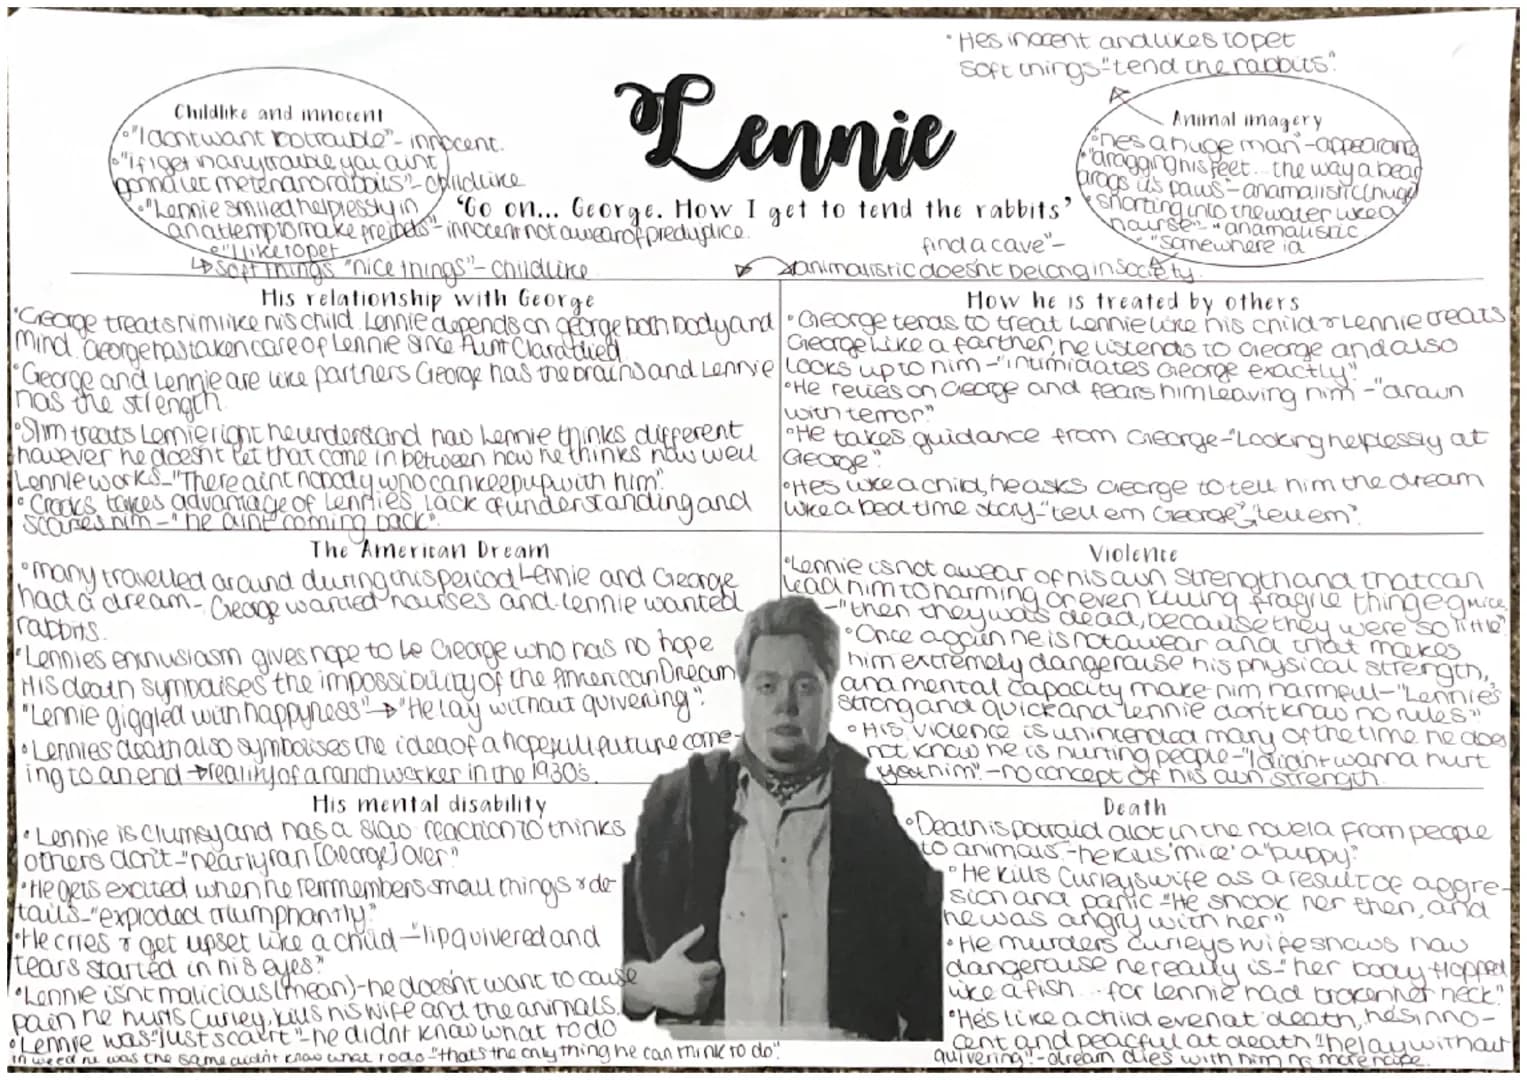 •Hes inocent and likes to pet
soft things-"tend the rabbits".
Lennie
Childlike and innocent
•"I dont want no trouble"- innocent.
•"if i get in any trouble you aint
gonna let me tend no rabbits"-childlike
•"Lennie smiled helplessly in
an attempt to make freinds"-innocent not awear of predujdice.
•"I like to pet
↳soft things "nice things"-childlike
'Go on... George. How I get to tend the rabbits'
Animal imagery
•hes a huge man-appearance
•"dragging his feet... the way a bear
drags its paws"-anamalistic(huge)
•snorting into the water like a
hourse"-"anamalistic
•"somewhere id
find a cave"-
animalistic doesnt belong in society.
His relationship with George
•George treats him like his child. Lennie depends on george both body and
mind. George has taken care of Lennie since Aunt Clara died
•George and Lennie are like partners George has the brains and Lennie
has the strength.
•Slim treats Lennie right he understand how Lennie thinks different
however he doesnt let that come in between how he thinks how well
Lennie works-"There aint nobody who can keep up with him".
•Crooks takes advantage of Lennies lack of understanding and
scares him-"he aint coming back".
How he is treated by others
•George tends to treat Lennie like his child & Lennie treats
George like a farther, he listends to George and also
looks up to him-"intimidates George exactly"
•He relies on George and fears him leaving him -"drawn
with terror"
•He takes guidance from George-"Looking helplessly at
George".
•Hes like a child, he asks George to tell him the dream
like a bed time story-"tell em George", "tell em".
The American Dream
•many travelled around during this period Lennie and George
had a dream- George wanted hourses and lennie wanted
rabbits.
•Lennies enthusiasm gives hope to Le George who has no hope
His death symbolises the impossibility of the American Dream
"Lennie giggled with happyness"→"He lay without quivering".
•Lennies death also symbolises the idea of a hopefull future come-
ing to an end→reality of a ranch worker in the 1930s.
Violence
•Lennie is not awear of his own strength and that can
lead him to harming or even killing fragile things e.g mice
-"then they was dead, because they were so little"
•Once again he is not awear and that makes
him extremely dangerouse his physical strength,
and mental capacity make him harmful-"Lennie's
strong and quick and Lennie don't know no rules"
•His violence is unintended many of the time he does
not know he is hurting people-"I didn't wanna hurt
him"-no concept of his own strength.
His mental disability
•Lennie is clumsy and has a slow reaction to thinks
others don't-"nearly ran [George] over"
•He gets excited when he remmembers small things & de-
tails-"exploded triumphantly"
•He cries & get upset like a child-"lip quivered and
tears started in his eyes."
•Lennie isnt malicious(mean)-he doesnt want to cause
pain he hurts Curley, kills his wife and the animals.
•Lennie was "just scairt"-he didnt know what to do
in weed he was the same didnt know what to do-"thats the only thing he can think to do".
Death
•Death is potraid alot in the novela from people
to animals.-he kills 'mice' a "puppy".
•He kills Curleys wife as a result of aggre-
sion and panic-"He shook her then, and
he was angry with her"
•He murders curleys wife shows how
dangerouse he really is-"her body flopped
like a fish... for Lennie had broken her neck".
•He's like a child even at death, he's inno-
cent and peacful at death "he lay without
quivering"-dream dies with him no more hope.